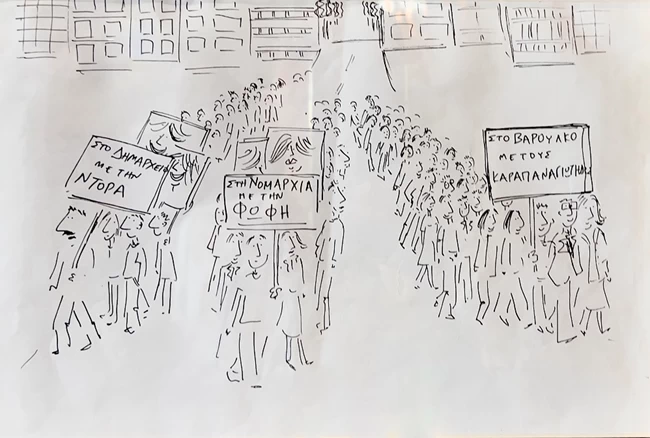 ΣΤΟ ΔΗΜΑΡΧΕΙΟ
ΜΕ ΤΗΝ
ΝΤΟΡΑ
ΣΤΗ ΝΟΜΑΡΧΙΑ
ΜΕ ΤΗΝ
ΦΩΦΗ
ΣΤΟ ΒΑΡΟΥΛΚΟ
ΜΕ ΤΟΥΣ